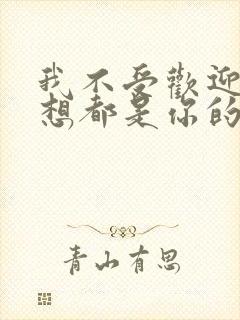 我不受歡迎
想都是你的
青山有思